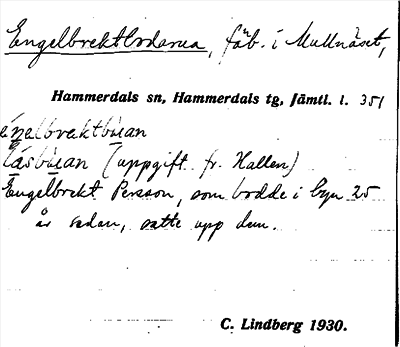 Engelbrektbodarna, fäb. i Mullnäset,
Hammerdals sn, Hammerdals tg, Jämtl. l. 351
éŋelbrektbu̇an
lásbu̇an (uppgift fr. Hallen)
Engelbrekt Persson, som bodde i byn 25
år sedan, satte upp dem.
C. Lindberg 1930.